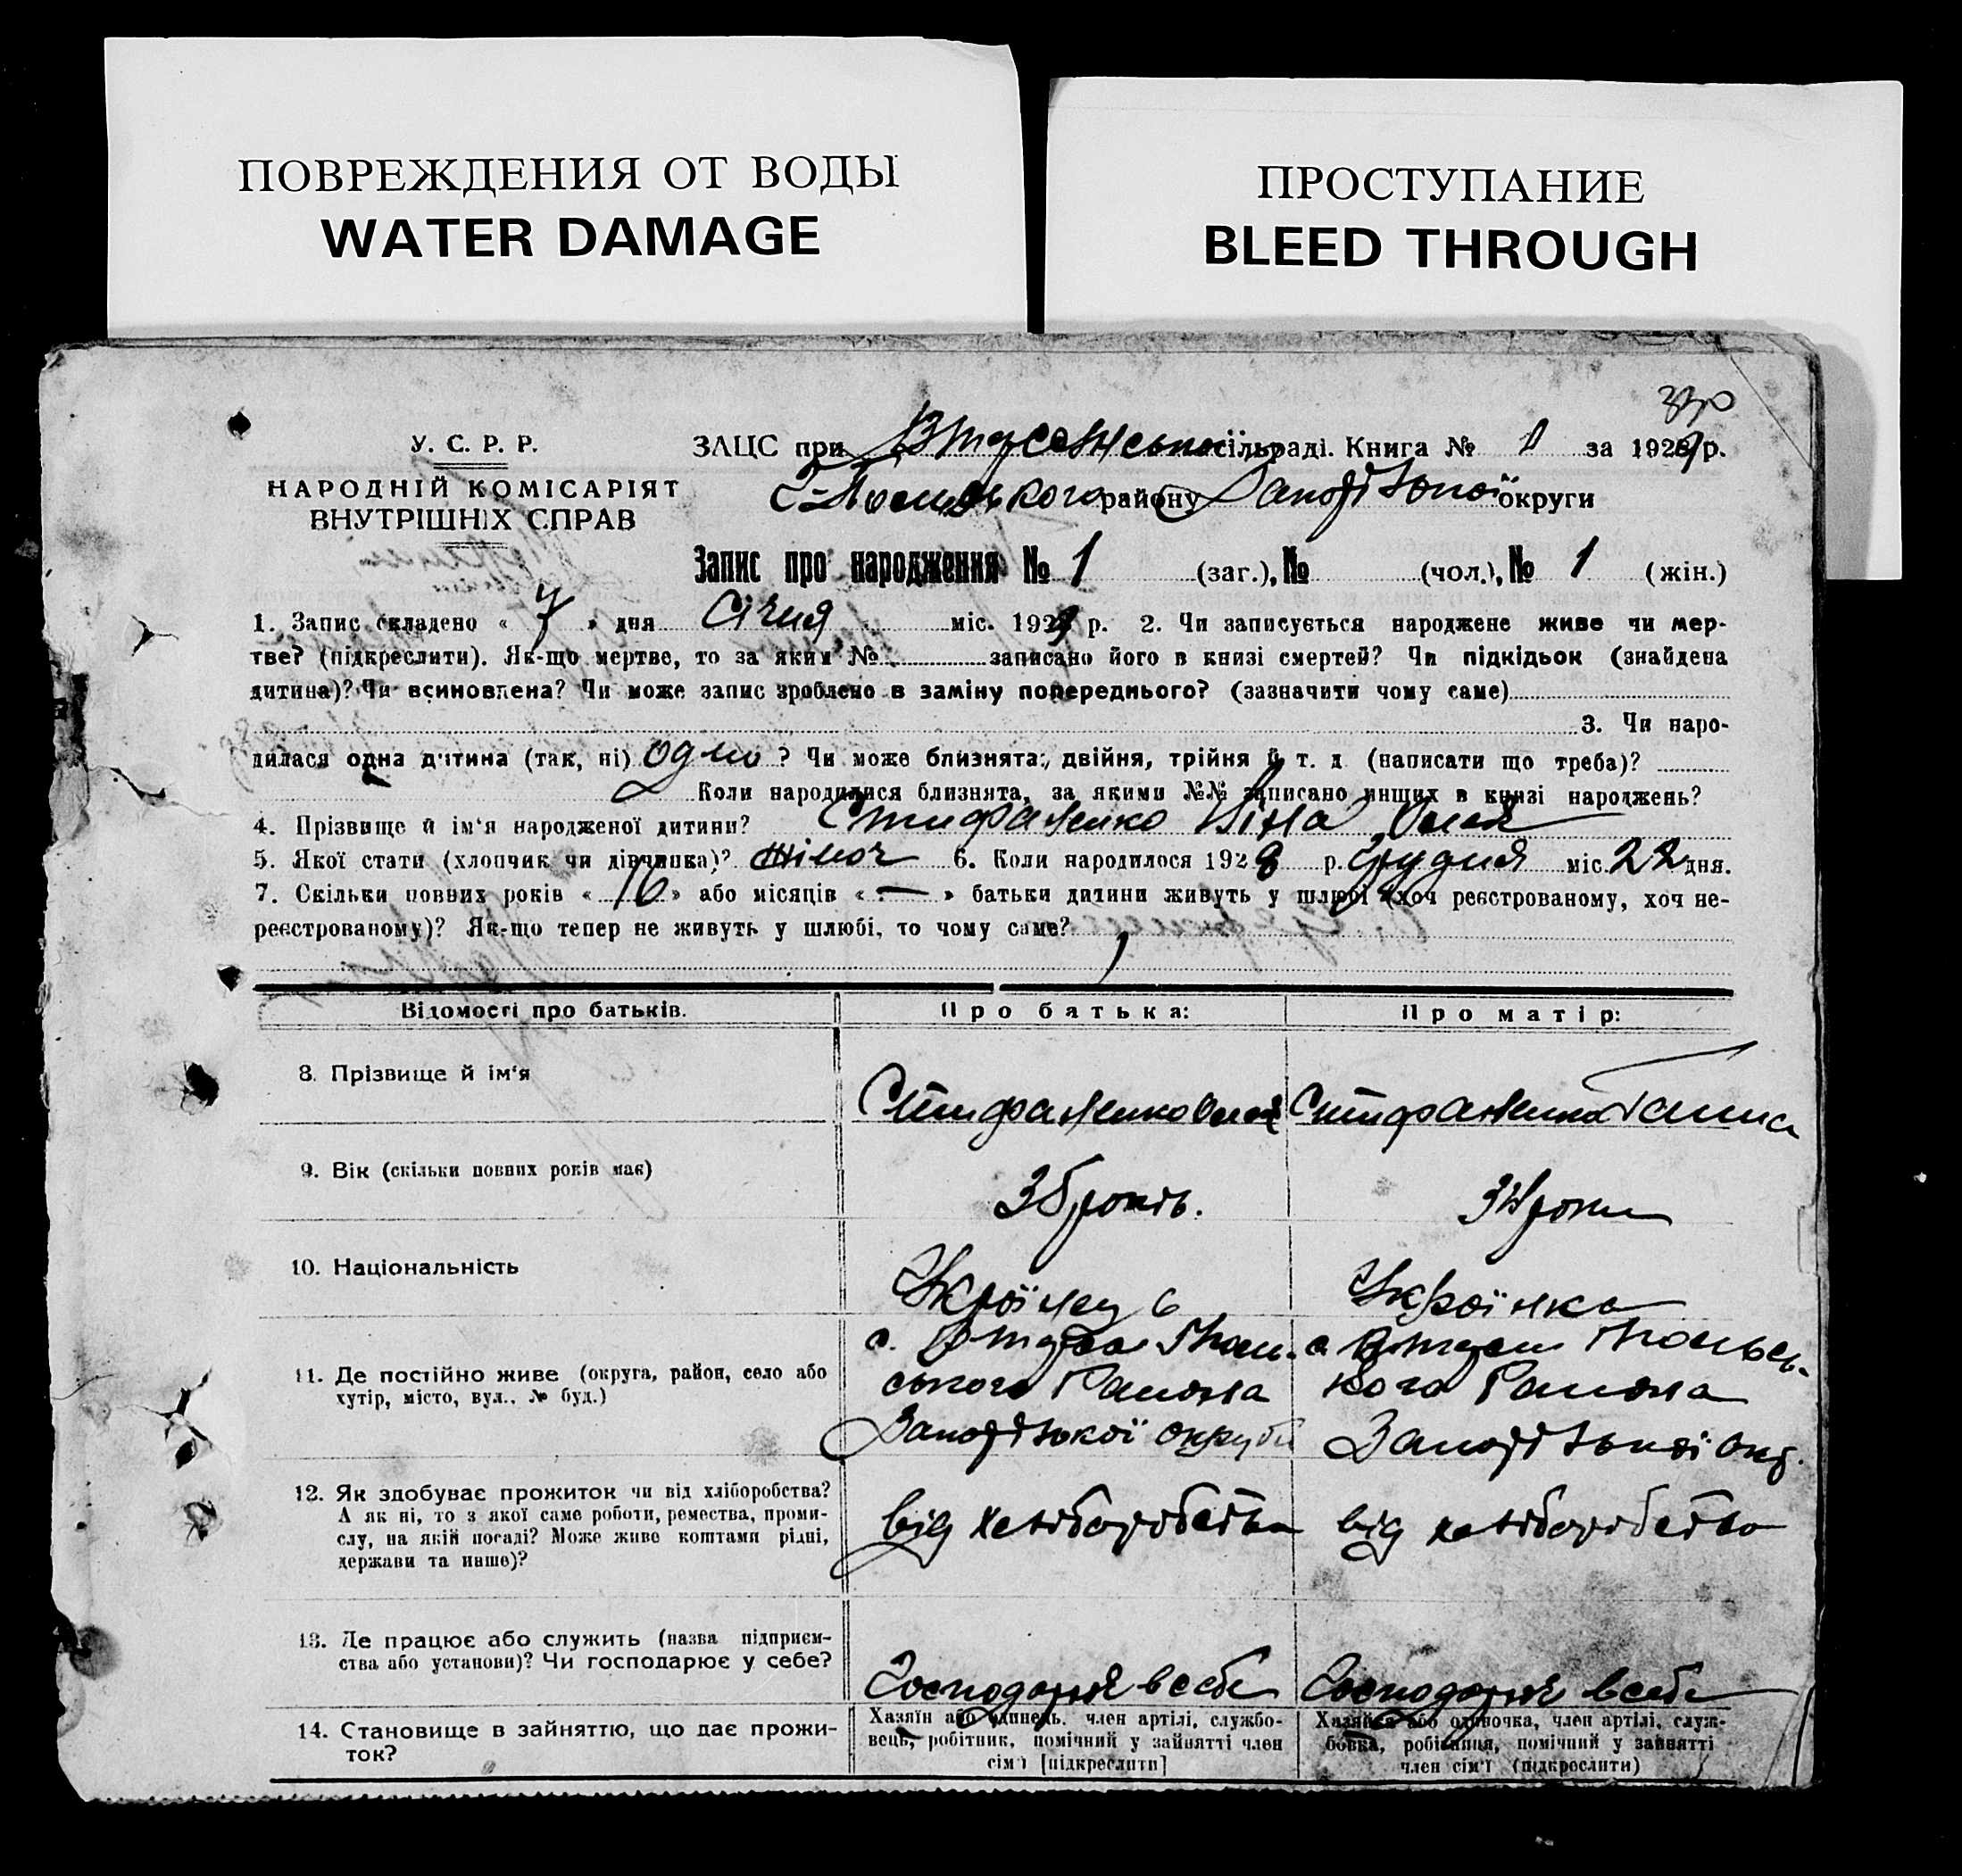 ПОВРЕЖДЕНИЯ ОТ ВОДЫ
WATER DAMAGE
ПРОСТУПАНИЕ
BLEED THROUGH
У. С. Р. Р.
НАРОДНІЙ КОМІСАРІЯТ
ВНУТРІШНІХ СПРАВ
ЗАЦС при сільраді. Книга № 1 за 1929 р.
району Запорізької округи
Запис про народження № 1 (заг.), № (чол.), № 1 (жін.)
1. Запис складено « 7 » дня Січня міс. 1929 р. 2. Чи записується народжене живе чи мер-
тве? (підкреслити). Як-що мертве, то за яким № записано його в книзі смертей? Чи підкідьок (знайдена
дитина)? Чи всиновлена? Чи може запис зроблено в заміну попереднього? (зазначити чому саме)
3. Чи наро-
дилася одна дитина (так, ні) одно ? Чи може близнята, двійня, трійня й т. д. (написати що треба)?
Коли народилися близнята, за якими №№ записано инших в книзі народжень?
4. Прізвище й ім'я народженої дитини? Стифаненко
5. Якої стати (хлопчик чи дівчинка)? жіноч 6. Коли народилося 1928 р. Грудня міс. 22 дня.
7. Скільки повних років « 16 » або місяців « — » батьки дитини живуть у шлюбі (хоч реєстрованому, хоч не-
реєстрованому)? Як-що тепер не живуть у шлюбі, то чому саме?
Відомості про батьків.
Про батька:
Про матір:
8. Прізвище й ім'я
Стифаненко
Стифаненко Ганна
9. Вік (скільки повних років має)
36 років.
34 роки
10. Національність
Українець
Українка
11. Де постійно живе (округа, район, село або
хутір, місто, вул., № буд.)
ського Района
кого Района
Запорізької округи
Запорізької окр.
12. Як здобуває прожиток чи від хліборобства?
А як ні, то з якої саме роботи, ремества, проми-
слу, на якій посаді? Може живе коштами рідні,
держави та инше)?
від хліборобства
від хліборобства
13. Де працює або служить (назва підприєм-
ства або установи)? Чи господарює у себе?
Господарює в себе
Господарює в себе
14. Становище в зайняттю, що дає прожи-
ток?
Хазяїн або одинець, член артілі, службо-
вець, робітник, помічний у зайнятті член
сім'ї [підкреслити]
Хазяйка або одиночка, член артілі, служ-
бовка, робітниця, помічний у зайнятті
член сім'ї (підкреслити)